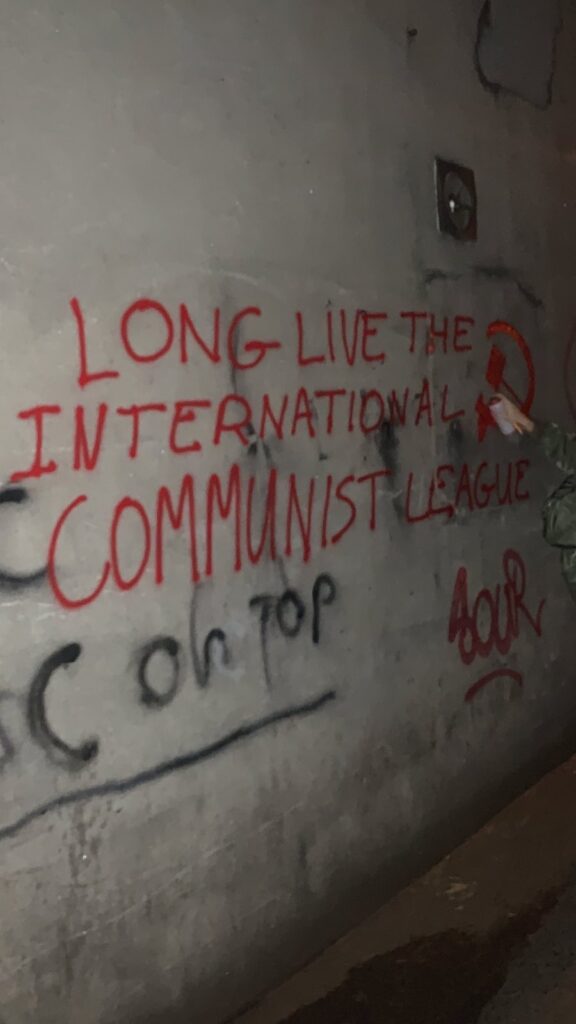 LONG LIVE THE
INTERNATIONAL
COMMUNIST LEAGUE
C on TOP